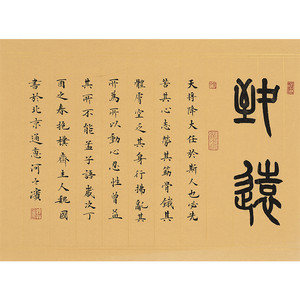 致遠
天將降大任於斯人也必先
苦其心志勞其筋骨餓其
體膚空乏其身行拂亂其
所為所以動心忍性曾益
其所不能孟子語歲次丁
酉之春抱樸齋主人魏國
書於北京通惠河之濱